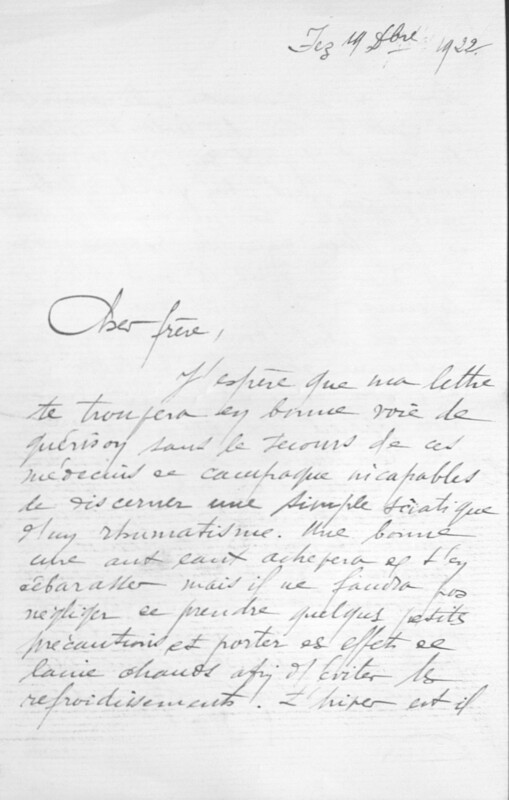 Fez 19 Xbre 1922
Cher frère,
J'espère que ma lettre
te trouvera en bonne voie de
guérison sans le secours de ces
médecins de campagne incapables
de discerner une simple sciatique
d'un rhumatisme. Une bonne
cure achèvera de t'en
débarasser mais il ne faudra pas
négliger de prendre quelques petites
précautions et porter des effets de
laine chauds afin d'éviter les
refroidissements. L'hiver est il